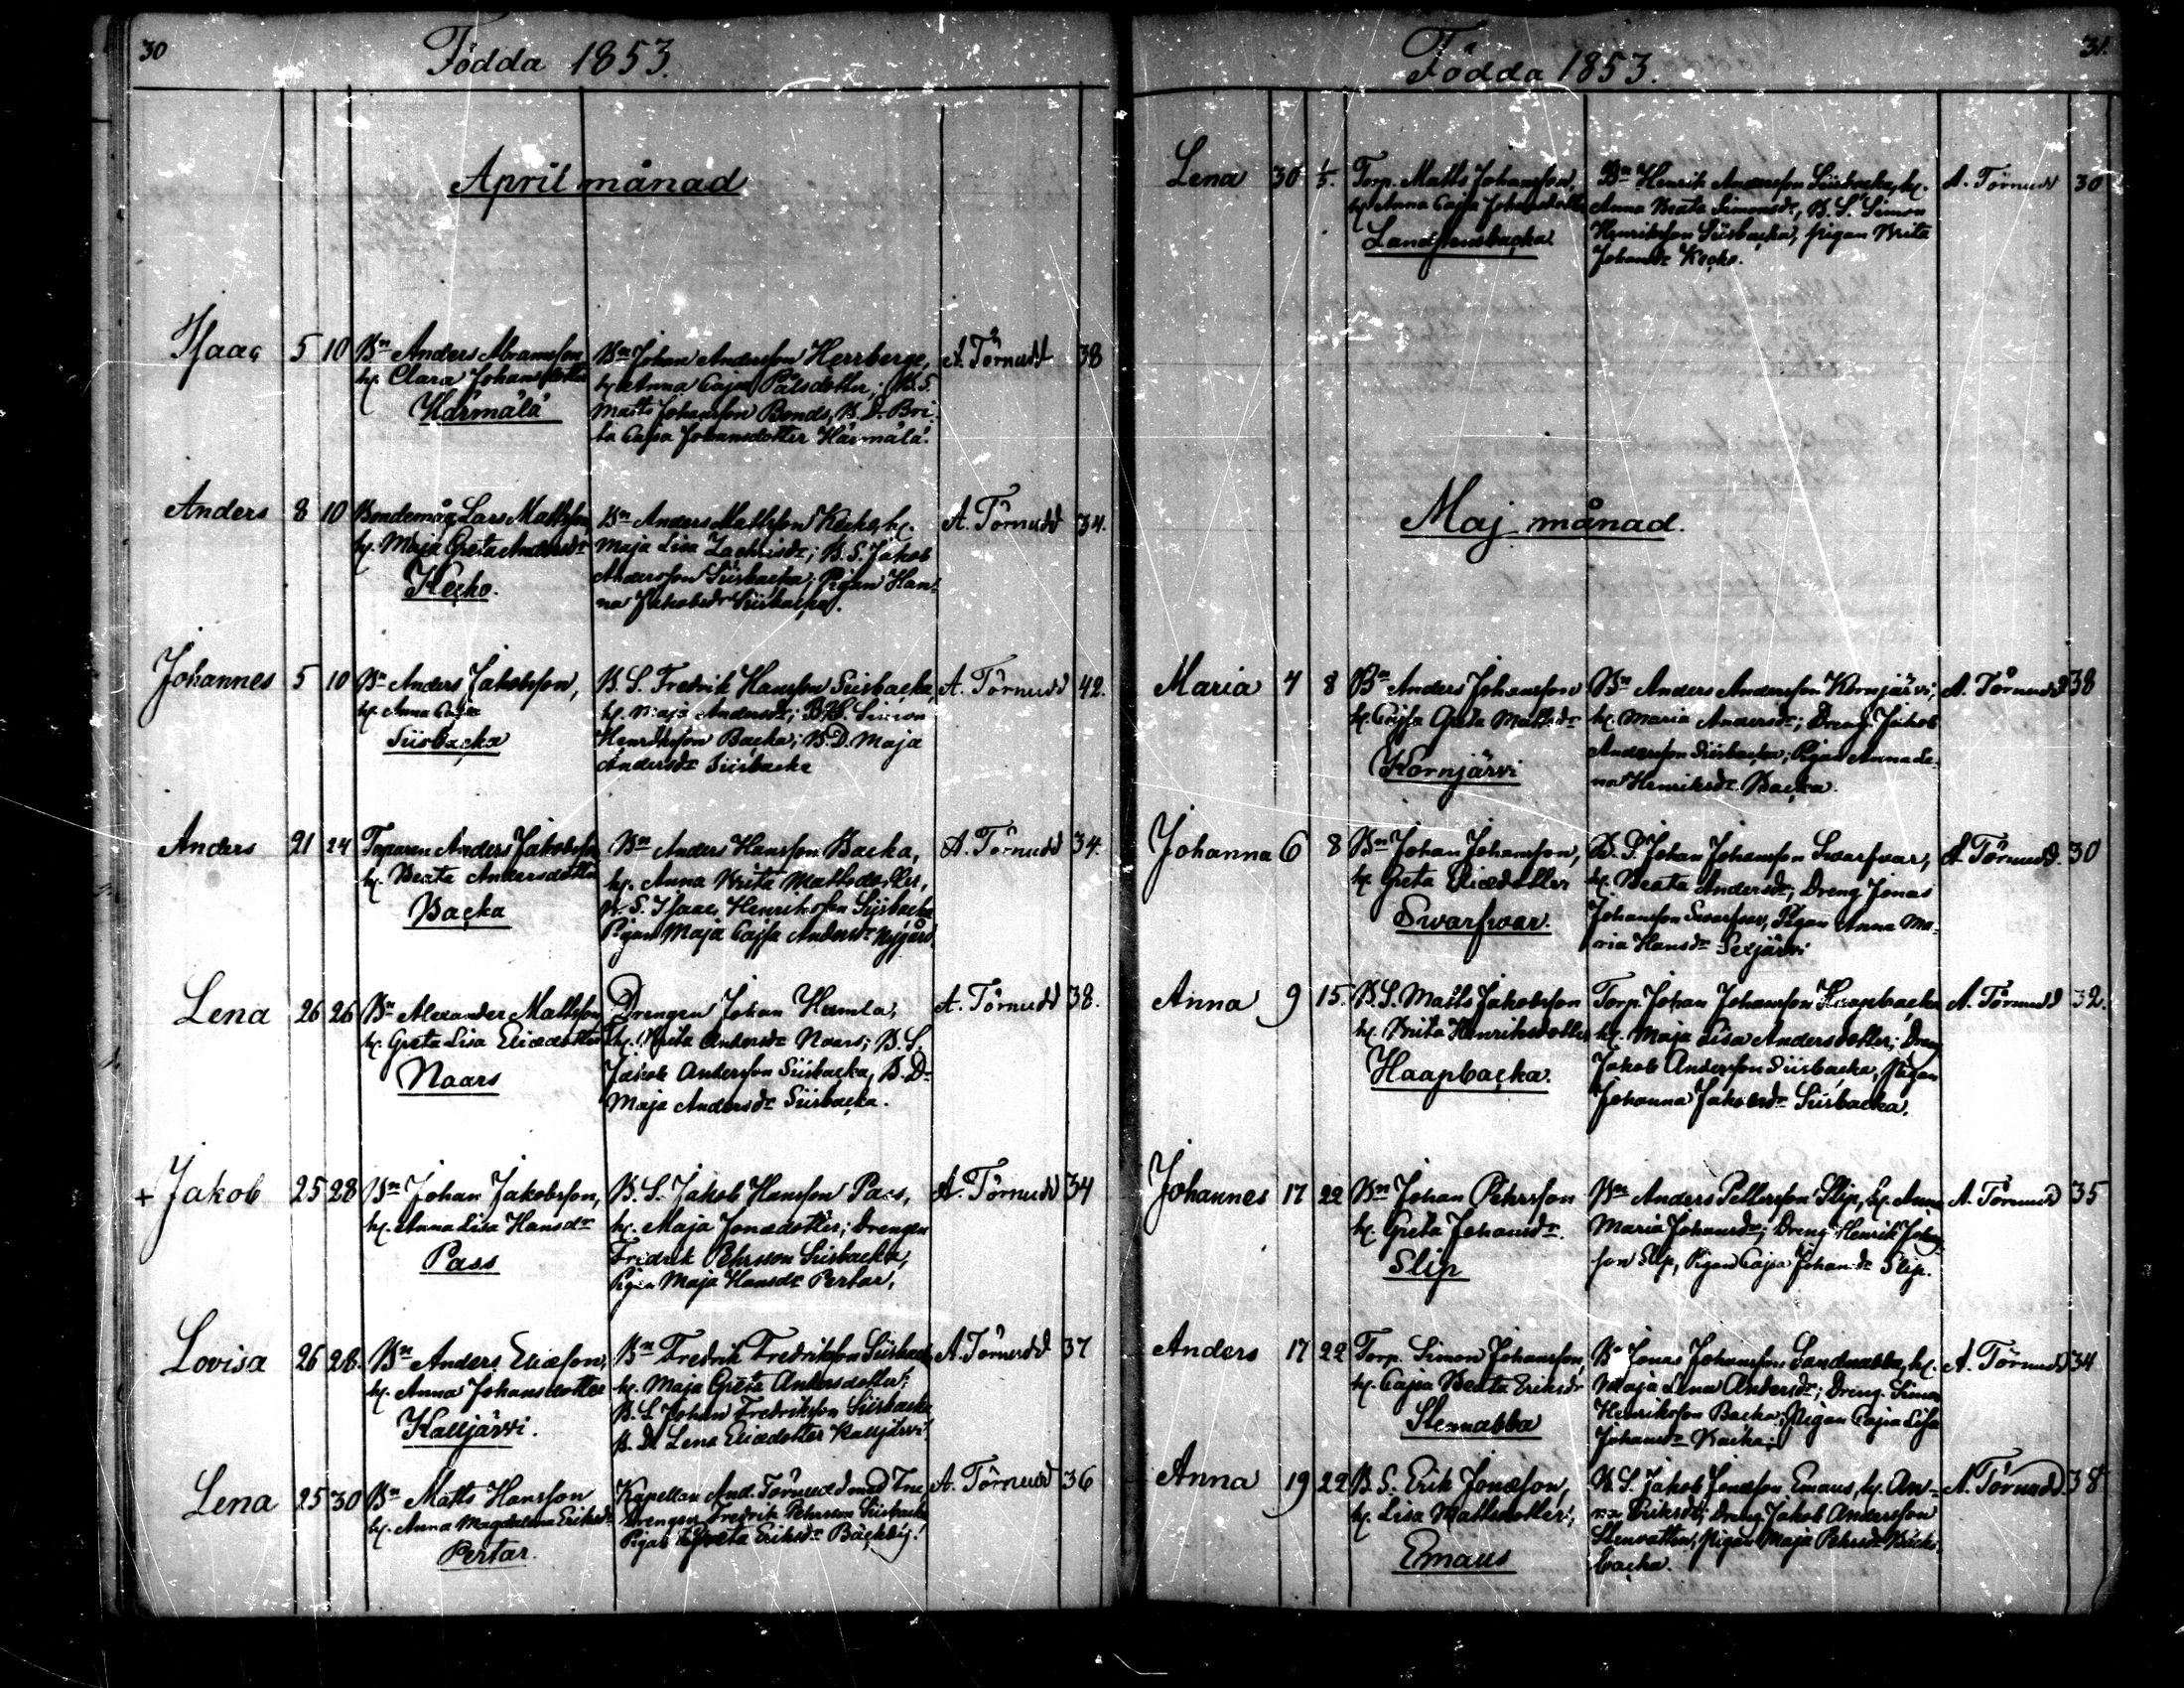 30
Födda 1853.
April månad
Isaac 5 10 Bn Anders Abramsson A. Törnudd 38
h. Clara Johansdotter
Härmälä
Bn Johan Andersson Herrberge,
h. Anna Cajsa Pålsdotter; B.S.
Matts Johansson Bonds, B.D. Bri-
ta Cajsa Johansdotter Härmälä.
Anders 8 10 Bondemåg Lars Mattsson A. Törnudd 34.
h. Maja Greta Andersdr
Kecko.
Bn Anders Mattsson Kecko, h.
Maja Lisa Zachrisdr; B.S. Jakob
Andersson Siisbacka; Pigan Han-
na Jakobsdr Siisbacka.
Johannes 5 10 Bn Anders Jakobsson, A. Törnudd 42.
h. Anna Cajsa
Siisbacka
B.S. Fredrik Hansson Siisbacka,
h. Maja Andersdr; B.S. Simon
Henriksson Backa; B.D. Maja
Andersdr Siisbacka
Anders 21 24 Torparen Anders Jakobsson A. Törnudd 34.
h. Beata Andersdotter
Backa
Bn Anders Hansson Backa,
h. Anna Brita Mattsdotter,
B.S. Isaac Henriksson Siisbacka
Pigan Maja Cajsa Andersdr Nygård
Lena 26 26 Bn Alexander Mattsson A. Törnudd 38.
h. Greta Lisa Eliædotter
Naars
Drengen Johan Hamla,
h. Brita Andersdr Naars; B.S.
Jakob Andersson Siisbacka, B.D.
Maja Andersdr Siisbacka.
+ Jakob 25 28 Bn Johan Jakobsson, A. Törnudd 34
h. Anna Lisa Hansdr
Pass
B.S. Jakob Hansson Pass,
h. Maja Jonædotter; Drengen
Fredrik Pehrsson Siisbacka,
Pigan Maja Hansdr Pertar,
Lovisa 26 28. Bn Anders Eliæson, A. Törnudd 37
h. Anna Johansdotter
Kalljärvi.
Bn Fredrik Fredriksson Siisbacka
h. Maja Greta Andersdotter;
B.S. Johan Fredriksson Siisbacka
B.D. Lena Eliædotter Kalljärvi
Lena 25 30 Bn Matts Hansson A. Törnudd 36
h. Anna Magdalena Eriksdr
Pertar.
Kapellan And. Törnudd med Fru
Drengen Fredrik Pehrsson Siisbacka
Pigan Greta Eriksdr
31.
Födda 1853.
Lena 30 1/5. Torp. Matts Johansson, A. Törnudd 30
h. Anna Cajsa Johansdotter
Bn Henrik Andersson Siisbacka, h.
Anna Beata Simonsdr, B.S. Simon
Henriksson Siisbacka, pigan Brita
Johansdr Kecko.
Maj månad.
Maria 4 8 Bn Anders Johansson A. Törnudd 38
h. Cajsa Greta Mattsdr
Kornjärvi
Bn Anders Andersson Kornjärvi,
h. Maria Andersdr; Dreng. Jakob
Andersson Siisbacka; Pigan Anna Le-
na Henriksdr Backa.
Johanna 6 8 Bn Johan Johansson, A. Törnudd. 30
h. Greta Eliædotter
Swarfvar.
B.S. Johan Johansson Swarfvar,
h. Beata Andersdr; Dreng Jonas
Johansson Swarfvar, Pigan Anna Ma-
ria Hansdr Sexjärvi
Anna 9 15. B.S. Matts Jakobsson A. Törnudd 32.
h. Brita Henriksdotter
Haapbacka.
Torp. Johan Johansson Haapbacka
h. Maja Lisa Andersdotter; Dreng
Jakob Andersson Siisbacka, Pigan
Johanna Jakobsdr Siisbacka.
Johannes 17 22 Bn Johan Pehrsson A. Törnudd 35
h. Greta Johansdr.
Slip
Bn Anders Pettersson Slip, h. Anna
Maria Johansdr; Dreng Henrik Johans-
son Slip, Pigan Cajsa Johansdr Slip.
Anders 17 22 Torp. Simon Johansson A. Törnudd 34
h. Cajsa Beata Eriksdr
Stennabba
Bn Jonas Johansson Sandnabba, h.
Maja Lena Andersdr; Dreng. Simon
Henriksson Backa; Pigan Cajsa Lisa
Johansdr Backa;
Anna 19 22 B.S. Erik Jonæson, A. Törnudd. 38
h. Lisa Mattsdotter,
Emaus
B.S. Jakob Jonæson Emaus, h. An-
na Eriksdr; Dreng. Jakob Andersson
Pigan Maja Pehrsdr Bäcks-
backa.